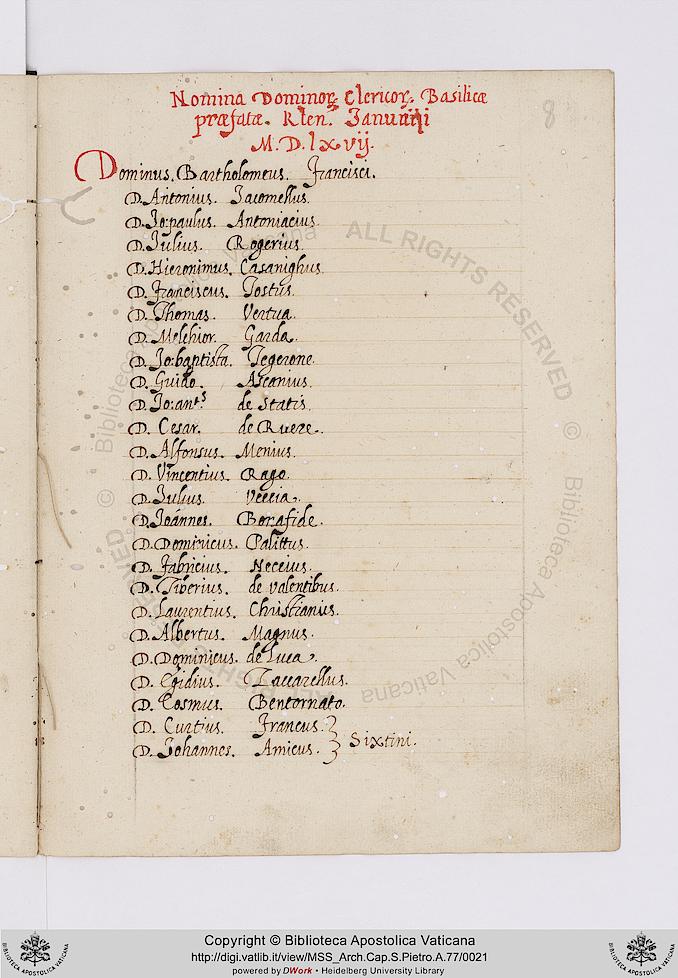 Nomina Dominor. Clericor. Basilicæ
præfatæ. Klen. Januarij
M.D.lxvij.
8
Dominus. Bartholomeus. Francisci.
D. Antonius. Jacomellus.
D. Jo:paulus. Antoniacius.
D. Julius. Rogerius.
D. Hieronimus. Casanighus.
D. Franciscus. Tostus.
D. Thomas. Vertua.
D. Melchior. Garda.
D. Jo:baptista. Tegerone.
D. Guido. Ascanius.
D. Jo:ants de Statis.
D. Cesar. de Ruere.
D. Alfonsus. Menius.
D. Vincentius. Rago.
D. Julius. Veccia.
D. Joannes. Bonafide.
D. Dominicus. Palittus.
D. Fabricius. Neceius.
D. Tiberius. de Valentibus.
D. Laurentius. Christianus.
D. Albertus. Magnus.
D. Dominicus. de Luca.
D. Egidius. Zaccarellus.
D. Cosmus. Bentornato.
D. Curtius. Francus.
D. Johannes. Amicus. Sixtini.
ALL RIGHTS RESERVED © Biblioteca Apostolica Vaticana
Copyright © Biblioteca Apostolica Vaticana
http://digi.vatlib.it/view/MSS_Arch.Cap.S.Pietro.A.77/0021
powered by DWork • Heidelberg University Library
BIBLIOTECA APOSTOLICA VATICANA
BIBLIOTECA APOSTOLICA VATICANA